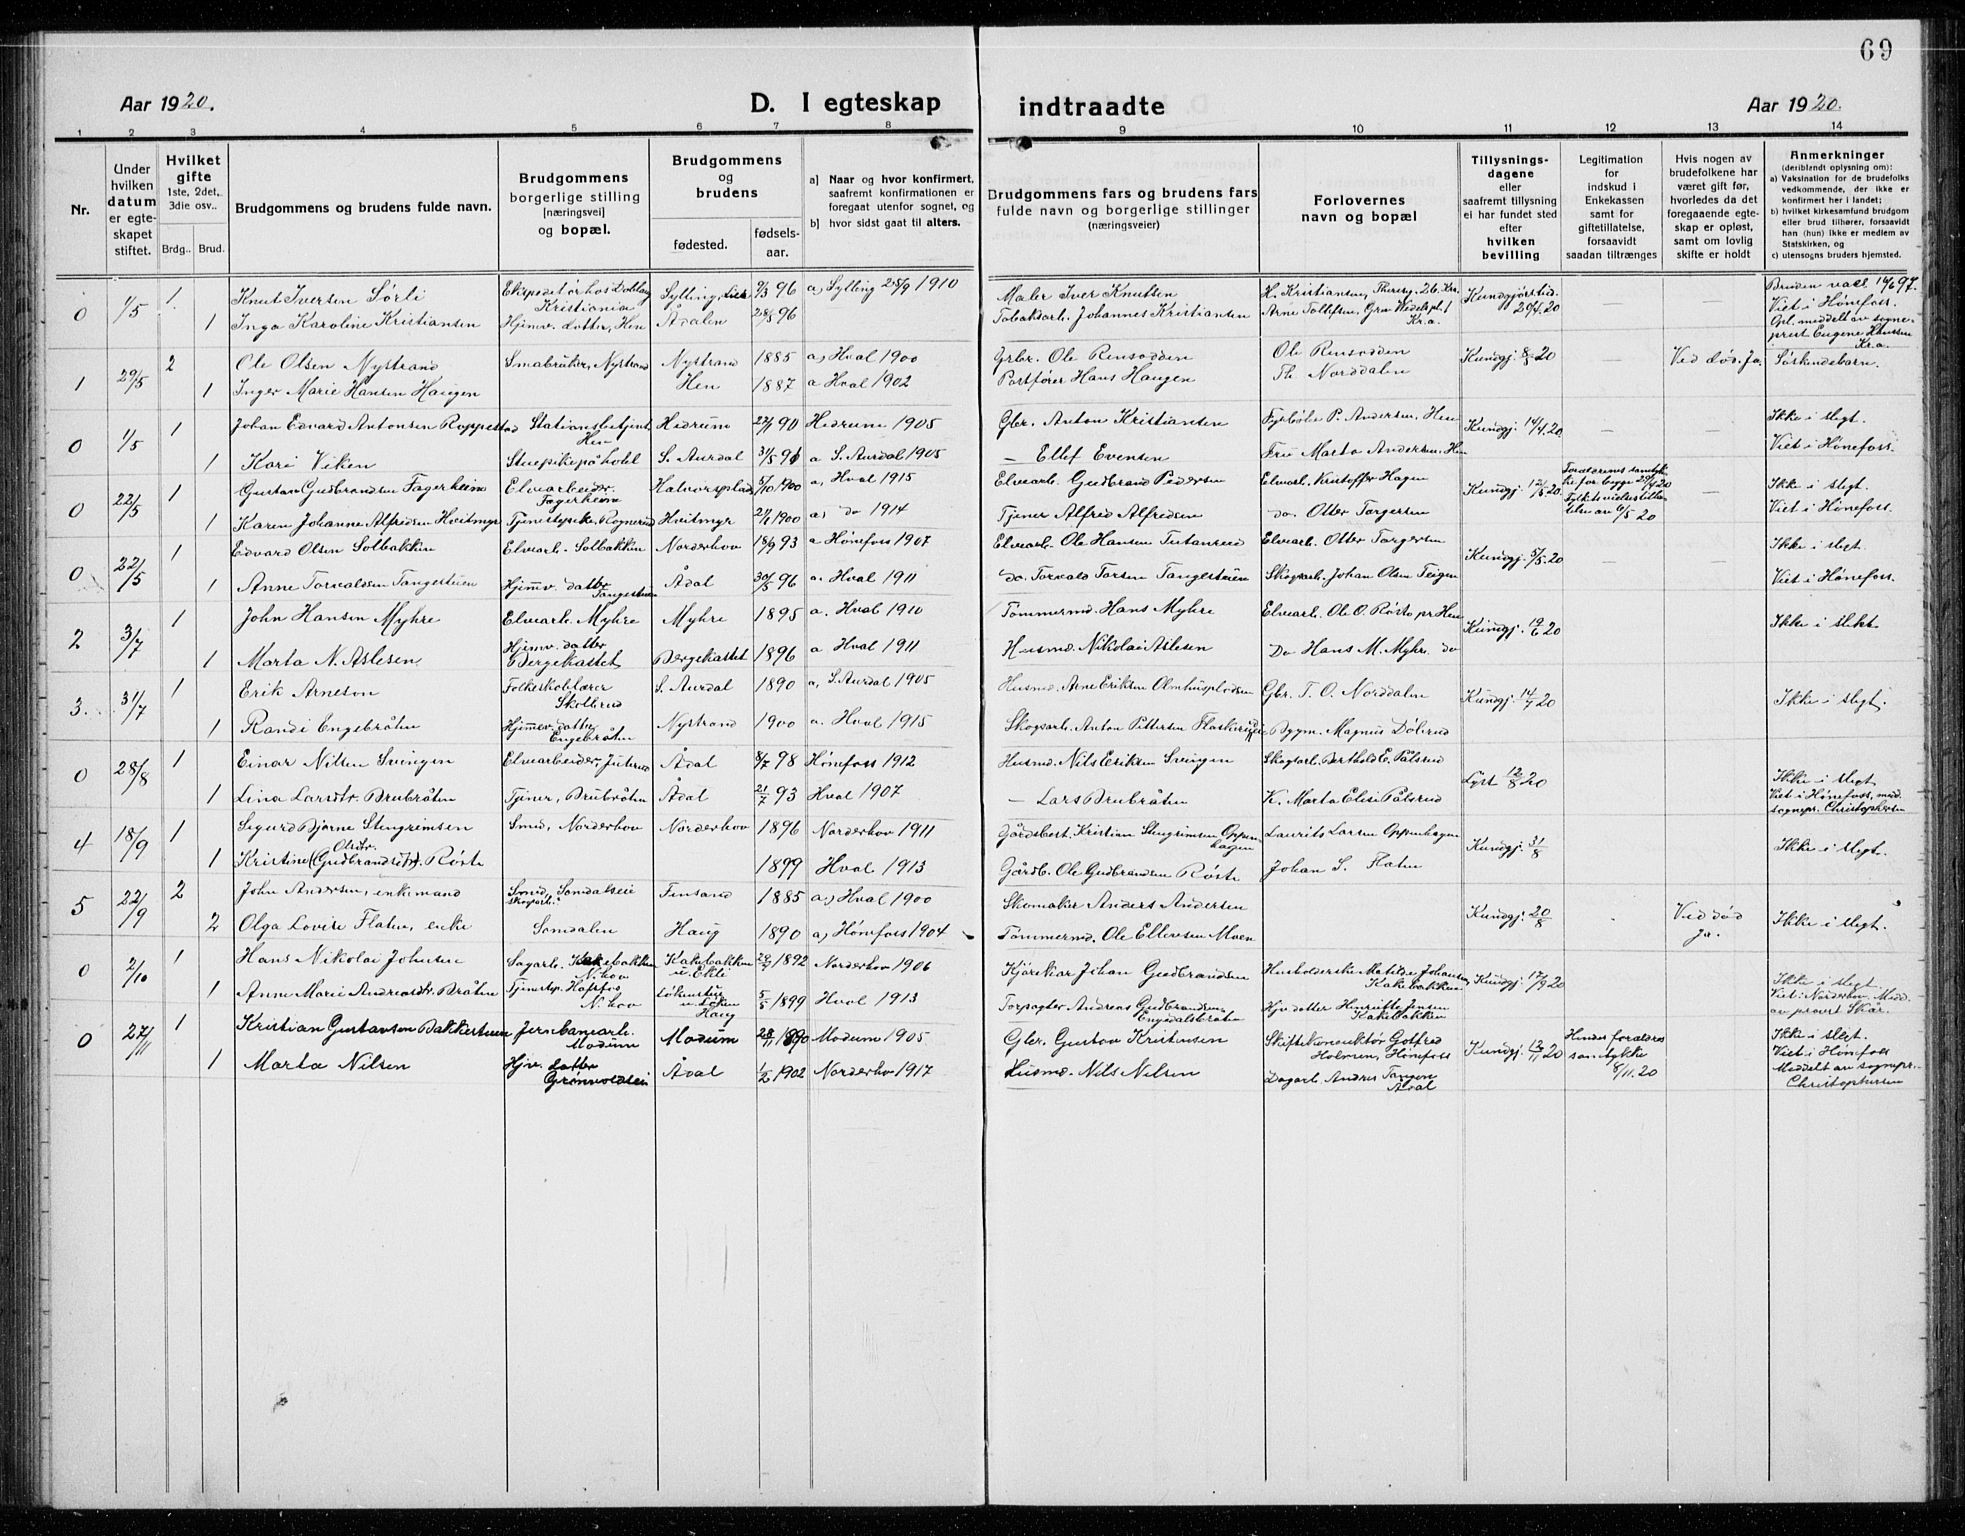 69
Aar 1920.
D. I egteskap indtraadte
Aar 1920.
1 2 3 4 5 6 7 8 9 10 11 12 13 14
Nr.
Under hvilken datum er egteskapet stiftet.
Hvilket gifte 1ste, 2det, 3die osv..
Brdg.. Brud.
Brudgommens og brudens fulde navn.
Brudgommens borgerlige stilling [næringsvei] og bopæl.
Brudgommens og brudens
fødested. fødselsaar.
a) Naar og hvor konfirmert, saafremt konfirmationen er foregaat utenfor sognet, og
b) hvor sidst gaat til alters.
Brudgommens fars og brudens fars fulde navn og borgerlige stillinger (næringsveier)
Forlovernes navn og bopæl
Tillysningsdagene eller saafremt tillysning ei har fundet sted efter hvilken bevilling
Legitimation for indskud i Enkekassen samt for giftetillatelse, forsaavidt saadan tiltrænges
Hvis nogen av brudefolkene har været gift før, hvorledes da det foregaaende egteskap er opløst, samt om lovlig skifte er holdt
Anmerkninger (deriblandt oplysning om):
a) Vaksination for de brudefolks vedkommende, der ikke er konfirmert her i landet;
b) hvilket kirkesamfund brudgom eller brud tilhører, forsaavidt han (hun) ikke er medlem av Statskirken, og
c) utensogns bruders hjemsted.
0 1/5 1 Knut Iversen Sørli Kristiania Sylling, Lier 7/3 96 a) Sylling 25/9 1910 Maler Iver Knutsen H. Kristiansen, Kra. 29/4.20 Bruden vacc. 14/6 97. Viet i Hønefoss.
1 Inga Karoline Kristiansen Hjemv. datter, Hen Ådalen 28/5 96 Tobaksarb. Johannes Kristiansen Arne Tollefsen, Grw Wedelspl. 1 Kra. prest Eugene Hanssen Kra.
1 29/5 2 Ole Olsen Nystrand Småbruker, Nystrand Nystrand 1885 a) Hval 1900 Grbr. Ole Rensodden Ole Rensodden Kundgj. 8/5 20 — Ved død. Ja. Søskendebarn.
1 Inger Marie Hansen Haugen Hen 1887 a Hval 1902 Postfører Hans Haugen Th. Norddalen
0 1/5 1 Johan Edvard Antonsen Roppestad Stationsbetjent Hen Hedrum 22/1 90 Hedrum 1905 Gbr. Anton Kristiansen P. Andersen, Hen Kundgj. 14/4.20 — — Ikke i slegt.
1 Kari Viken Stuepike på hotel S. Aurdal 31/5 91 a S. Aurdal 1905 — Ellef Evensen Fru Marta Andersen, Hen Viet i Hønefoss.
0 22/5 1 Gustav Gudbrandsen Fagerheim Elvearbeider. Fagerheim Halvorsplads 5/10 1900 a, Hval 1915 Elvearb. Gudbrand Pedersen Elvearb. Kristoffer Hagen Kundgj. 12/5 20 Forældrenes samtykke for begge 29/4 20 Ikke i slegt.
1 Karen Johanne Alfredsen Hvitmyr Tjenestepike, Rognerud Hvitmyr 21/1 1900 a) do 1914 Tjener Alfred Alfredsen do. Otter Torgersen 6/5 20 Viet i Hønefoss.
0 22/5 1 Edvard Olsen Solbakken Elvearb. Solbakken Norderhov 18/9 93 a Hønefoss 1907 Elvearb. Ole Hansen Tutanrud Elvearb. Otter Torgersen Kundgj. 5/5 20 — — Ikke i slegt
1 Anne Torvaldsen Tangestuen Hjemv. datter Tangestuen Ådal 30/5 96 a. Hval 1911 do. Torvald Torsen Tangestuen Skogsarb. Johan Olsen Teigen Viet i Hønefoss.
2 3/7 1 John Hansen Myhre Elvearb. Myhre Myhre 1895 a. Hval 1910 Tømmermd. Hans Myhre Elvearb. Ole O. Røste pr Hen Kundgj. 19/6 20 Ikke i slekt
1 Marta N. Aslesen Hjemv. datter Bergekastet Bergekastet 1896 a Hval 1911 Husmd. Nikolai Aslesen Do Hans M. Myhr. do
3. 31/7 1 Erik Arneson Folkeskolelærer Skollerud S. Aurdal 1890 a, S. Aurdal 1905 Husmd. Arne Eriksen Olmhusplodsen Gbr. T. O. Norddalen Kundgj. 14/7 20 Ikke i slegt.
1 Randi Engebråten Hjemmev. datter Engebråten Nystrand 1900 a. Hval 1915 Skogsarb. Anton Pettersen Bygm. Magnus Dølerud
0 28/8 1 Einar Nilsen Svingen Elvearbeider, Juterud Ådal 8/7 98 Hønefoss 1912 Husmd. Nils Eriksen Svingen Skogsarb. Berthold E. Pålsrud Lyst 12/8 20 Ikke i slegt
1 Lina Larsdtr. Brubråten Tjener, Brubråten Ådal 21/7 93 Hval 1907 — Lars Brubråten K. Marta Elise Pålsrud Viet i Hønefoss, med. sognepr. Christophersen
4 18/9 1 Sigurd Bjarne Stengrimsen Smed, Norderhov Norderhov 1896 Norderhov 1911 Gårdsbest. Kristian Stengrimsen Oppenhagen Laurits Larsen Oppenhagen Kundgj. 31/8 Ikke i slegt.
1 Kristine (Gudbrandsdtr) Olsdtr. Røste 1899 Hval 1913 Gårdb. Ole Gudbrandsen Røste Johan S. Flaten
5 22/9 2 John Andersen, enkemand Smed, Somdalseie skogarb. Finsand 1885 a) Hval 1900 Skomaker Anders Andersen Kundgj. 20/8 Ved død Ja. Ikke i slegt.
2 Olga Lovise Flaten, enke Somdalen Haug 1890 a) Hønefoss 1904 Tømmermd. Ole Ellevsen Moen
0 2/10 1 Hans Nikolai Johnsen Sagarb. Kakebakken N.hov Kakebakken u. Ekli 1892 Norderhov 1906 Kjørekar Johan Gudbrandsen Husholderske Matilde Johansen Kakebakken Kundgj. 17/9 20 Ikke i slegt
1 Anne Marie Andreasdtr. Bråten Tjenestep. Hofsfos N.hov Løkenstue u. Løken Haug 5/5 1899 Hval 1913 Torpagter Andreas Gudbrandsen Engedalsbråten Hjv. datter Henriette Jensen Kakebakken Viet i Norderhov. Medd. av provst Skar.
0 27/11 1 Kristian Gustavsen Bakkestuen Jernbanearb. Modum Modum 28/11 1890 Modum 1905 Gbr. Gustav Kristensen Gotfred Holmen, Hønefoss Kundgj. 13/11 20 Hendes forældres samtykke 8/11.20 Ikke i slegt.
1 Marta Nilsen Hjv. datter Grønvoldseie Ådal 1/2 1902 Norderhov 1917 Husmd. Nils Nilsen Dagarb. Andres Tangen Ådal Viet i Hønefoss Meddelt av sognepr. Christophersen